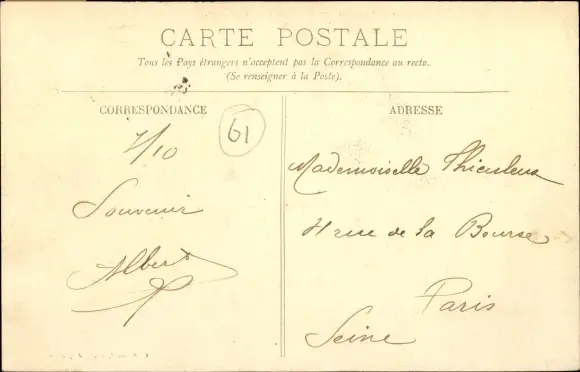 CARTE POSTALE
Tous les Pays étrangers n'acceptent pas la Correspondance au recto.
(Se renseigner à la Poste).
CORRESPONDANCE
61
7/10
Souvenir
Albert
ADRESSE
Mademoiselle
rue de la Bourse
Paris
Seine